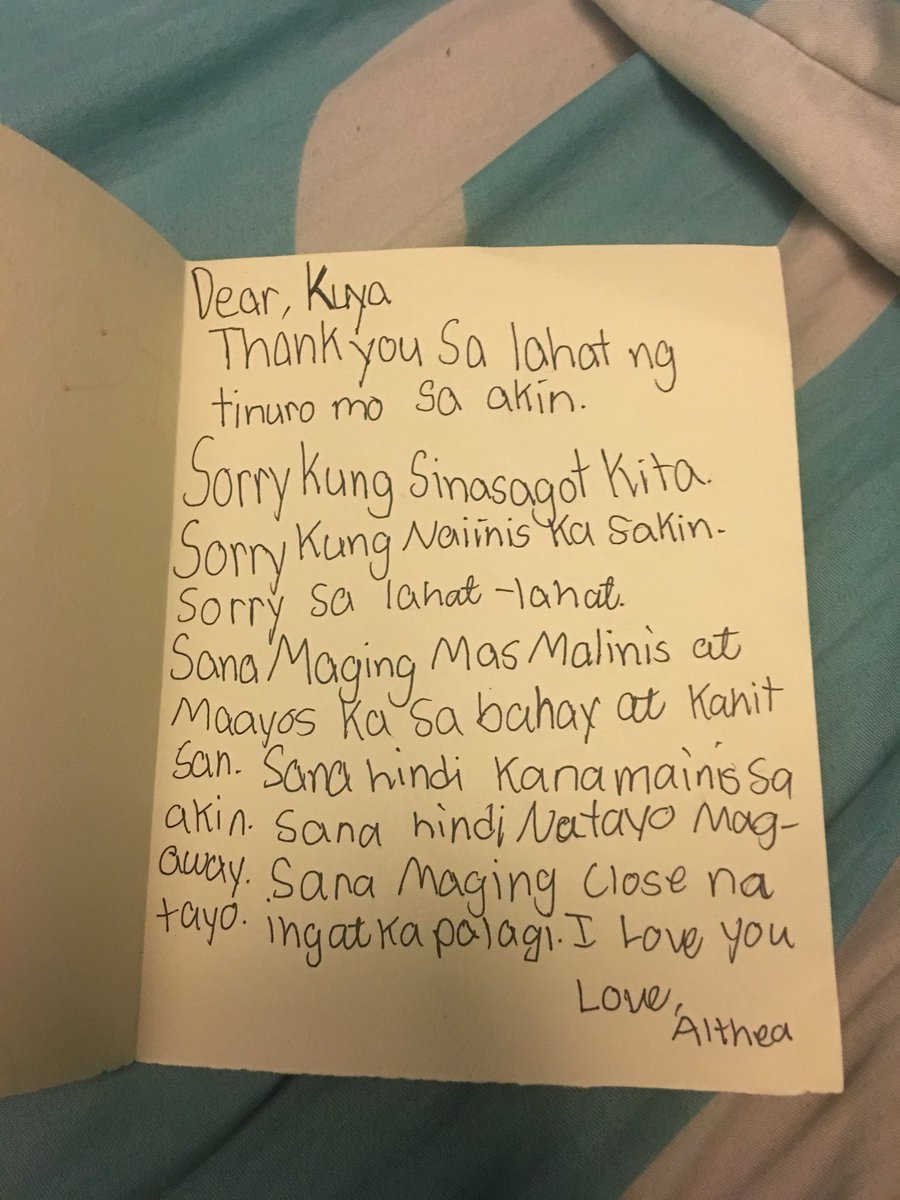 Dear, Kuya
Thank you Sa lahat ng
tinuro mo sa akin.
Sorry Kung Sinasagot Kita.
Sorry Kung Naiinis Ka sakin.
sorry sa lahat-lahat.
Sana Maging Mas Malinis at
Maayos Ka sa bahay at Kahit
San. Sana hindi Kana mainis sa
akin. Sana hindi Natayo Mag-
away. Sana Maging Close na
tayo. ingat Ka palagi. I Love you
Love,
Althea